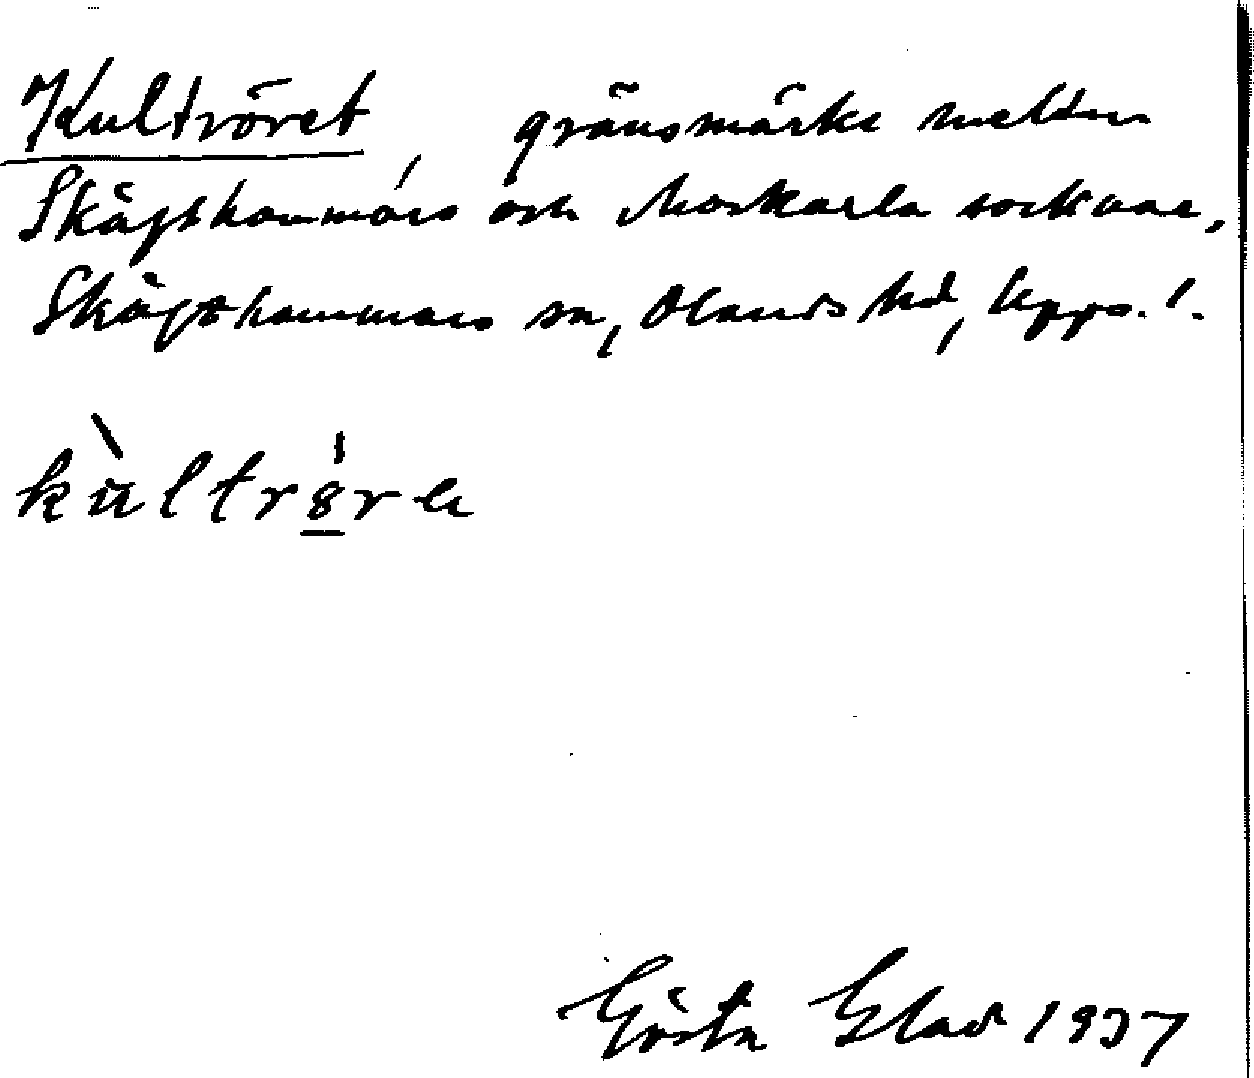 Kultröret, gränsmärke mellan
Skäfthammars och Morkarla socknar,
Skäfthammars sn, Olands hd, Upps. l.
kùltrörℯ
Gösta Elad 1937